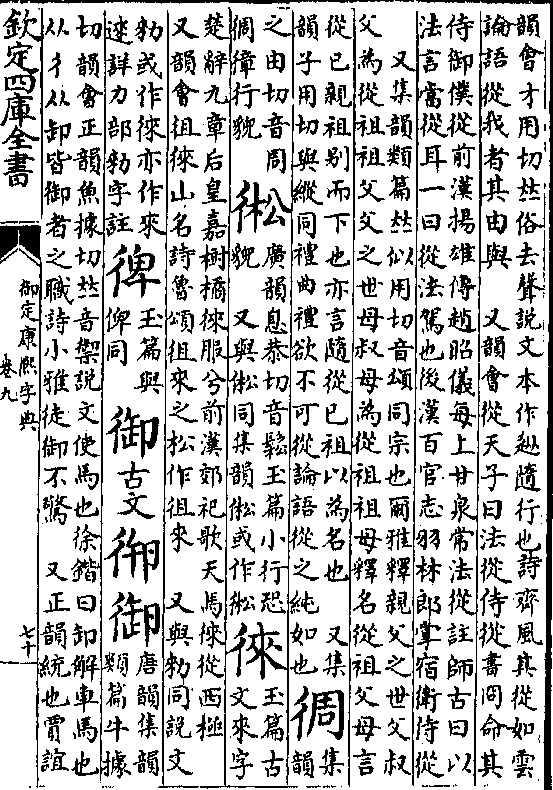 韻會才用切𠀤俗去聲說文本作䢐隨行也詩齊風其從如雲
論語從我者其由與 又韻會從天子曰法從侍從書冏命其
侍御僕從前漢揚雄傳趙昭儀每上甘泉常法從註師古曰以
法言當從耳一曰從法駕也後漢百官志羽林郎掌宿衛侍從
又集韻類篇𠀤似用切音頌同宗也爾雅釋親父之世父叔
父為從祖祖父父之世母叔母為從祖祖母釋名從祖父母言
從已親祖别而下也亦言隨從已祖以為名也 又集
韻子用切與縱同禮曲禮欲不可從論語從之純如也
徟 集韻
之由切音周
徟行貌
㣝 廣韻息恭切音鬆玉篇小行恐
貌 又與倯同集韻倯或作㣝
徠 玉篇古
文來字
楚辭九章后皇嘉樹橘徠服兮前漢郊祀歌天馬徠從西極
又韻會徂徠山名詩魯頌徂來之松作徂來 又與勑同說文
勑或作徠亦作來
逨詳力部勑字註
玉篇與
俾同
御 古文 御 唐韻集韻
類篇牛據
切韻會正韻魚據切𠀤音馭說文使馬也徐鍇曰卸解車馬也
从彳从卸皆御者之職詩小雅徒御不驚 又正韻統也賈誼
欽定四庫全書
御定康熙字典
卷九
七十